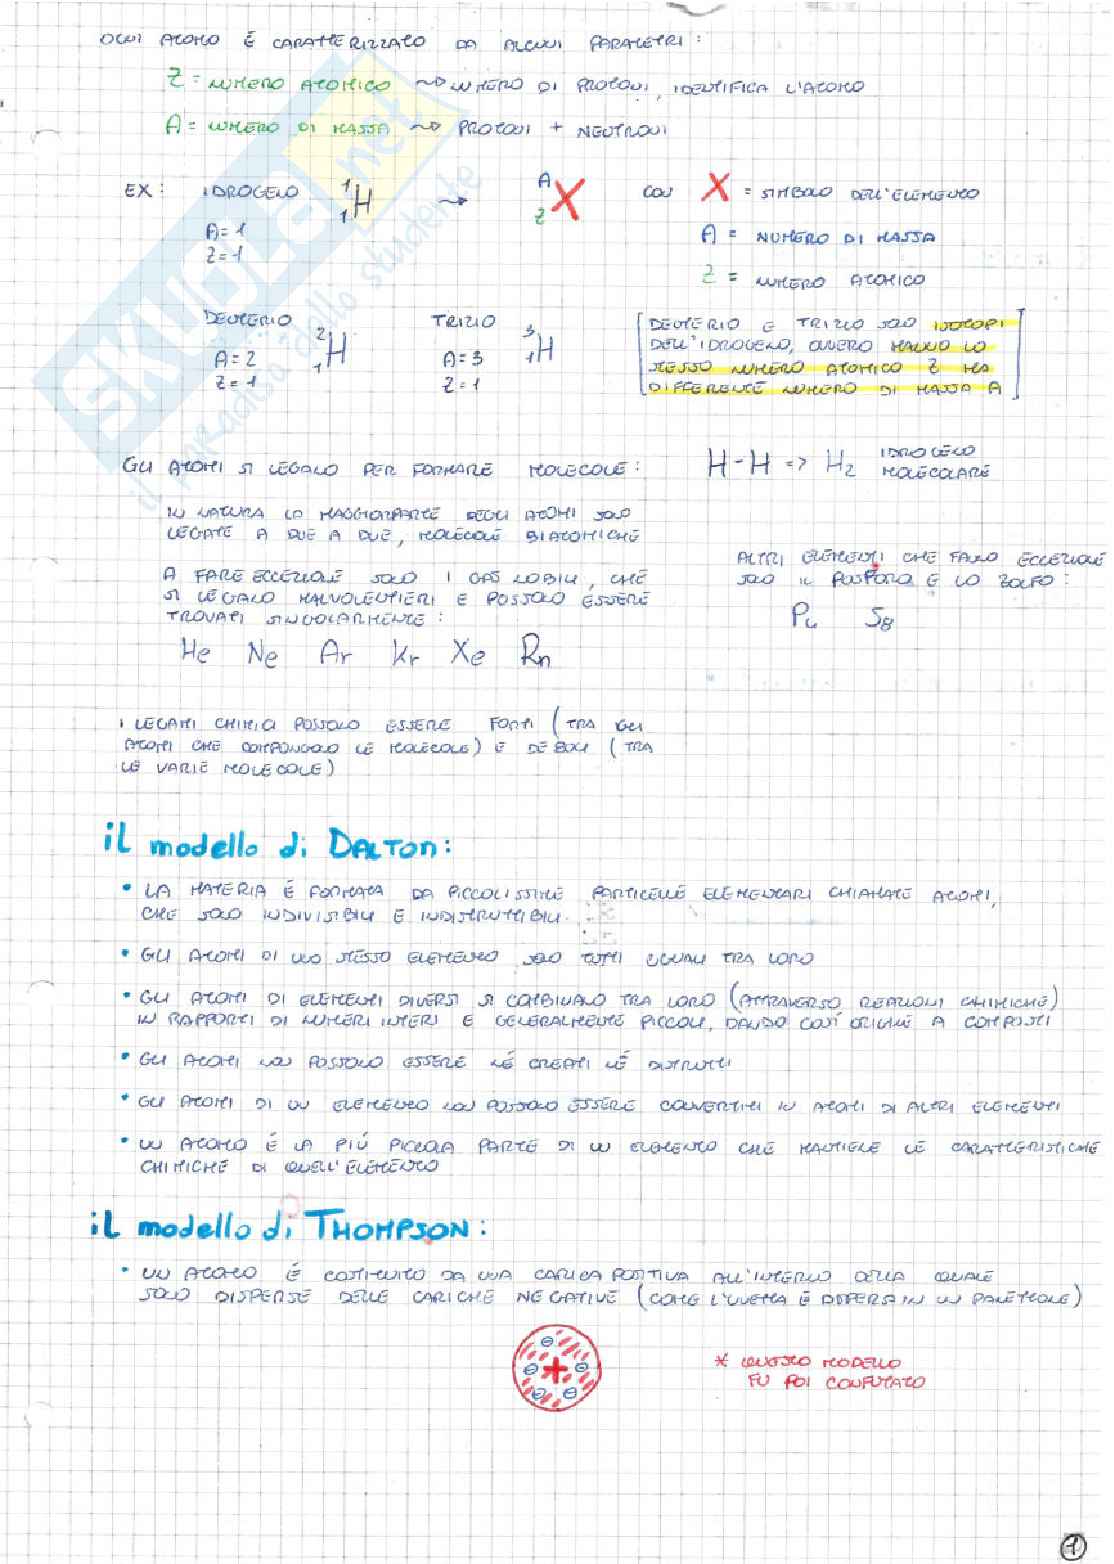 OGNI ATOMO È CARATTERIZZATO DA ALCUNI PARAMETRI:
Z = NUMERO ATOMICO ~> NUMERO DI PROTONI, IDENTIFICA L'ATOMO
A = NUMERO DI MASSA ~> PROTONI + NEUTRONI
EX: IDROGENO ¹₁H → ᴬ_Z X CON X = SIMBOLO DELL'ELEMENTO
A=1
Z=1
A = NUMERO DI MASSA
Z = NUMERO ATOMICO
DEUTERIO ²₁H
A=2
Z=1
TRIZIO ³₁H
A=3
Z=1
[DEUTERIO E TRIZIO SONO ISOTOPI
DELL'IDROGENO, OVVERO HANNO LO
STESSO NUMERO ATOMICO Z MA
DIFFERENTE NUMERO DI MASSA A]
GLI ATOMI SI LEGANO PER FORMARE MOLECOLE: H-H => H₂ IDROGENO
MOLECOLARE
IN NATURA LA MAGGIORPARTE DEGLI ATOMI SONO
LEGATE A DUE A DUE, MOLECOLE BIATOMICHE
A FARE ECCEZIONE SONO I GAS NOBILI, CHE
SI LEGANO MALVOLENTIERI E POSSONO ESSERE
TROVATI SINGOLARMENTE:
He Ne Ar Kr Xe Rn
ALTRI ELEMENTI CHE FANNO ECCEZIONE
SONO IL FOSFORO E LO ZOLFO:
P₄ S₈
I LEGAMI CHIMICI POSSONO ESSERE FORTI (TRA GLI
ATOMI CHE COMPONGONO LE MOLECOLE) E DEBOLI (TRA
LE VARIE MOLECOLE)
il modello di DALTON:
• LA MATERIA È FORMATA DA PICCOLISSIME PARTICELLE ELEMENTARI CHIAMATE ATOMI,
CHE SONO INDIVISIBILI E INDISTRUTTIBILI.
• GLI ATOMI DI UNO STESSO ELEMENTO SONO TUTTI UGUALI TRA LORO
• GLI ATOMI DI ELEMENTI DIVERSI SI COMBINANO TRA LORO (ATTRAVERSO REAZIONI CHIMICHE)
IN RAPPORTI DI NUMERI INTERI E GENERALMENTE PICCOLI, DANDO COSÌ ORIGINE A COMPOSTI
• GLI ATOMI NON POSSONO ESSERE NÉ CREATI NÉ DISTRUTTI
• GLI ATOMI DI UN ELEMENTO NON POSSONO ESSERE CONVERTITI IN ATOMI DI ALTRI ELEMENTI
• UN ATOMO È LA PIÙ PICCOLA PARTE DI UN ELEMENTO CHE MANTIENE LE CARATTERISTICHE
CHIMICHE DI QUELL'ELEMENTO
il modello di THOMPSON:
• UN ATOMO È COSTITUITO DA UNA CARICA POSITIVA ALL'INTERNO DELLA QUALE
SONO DISPERSE DELLE CARICHE NEGATIVE (COME L'UVETTA È DISPERSA IN UN PANETTONE)
* QUESTO MODELLO
FU POI CONFUTATO
1
SKUOLA.net
il paradiso dello studente